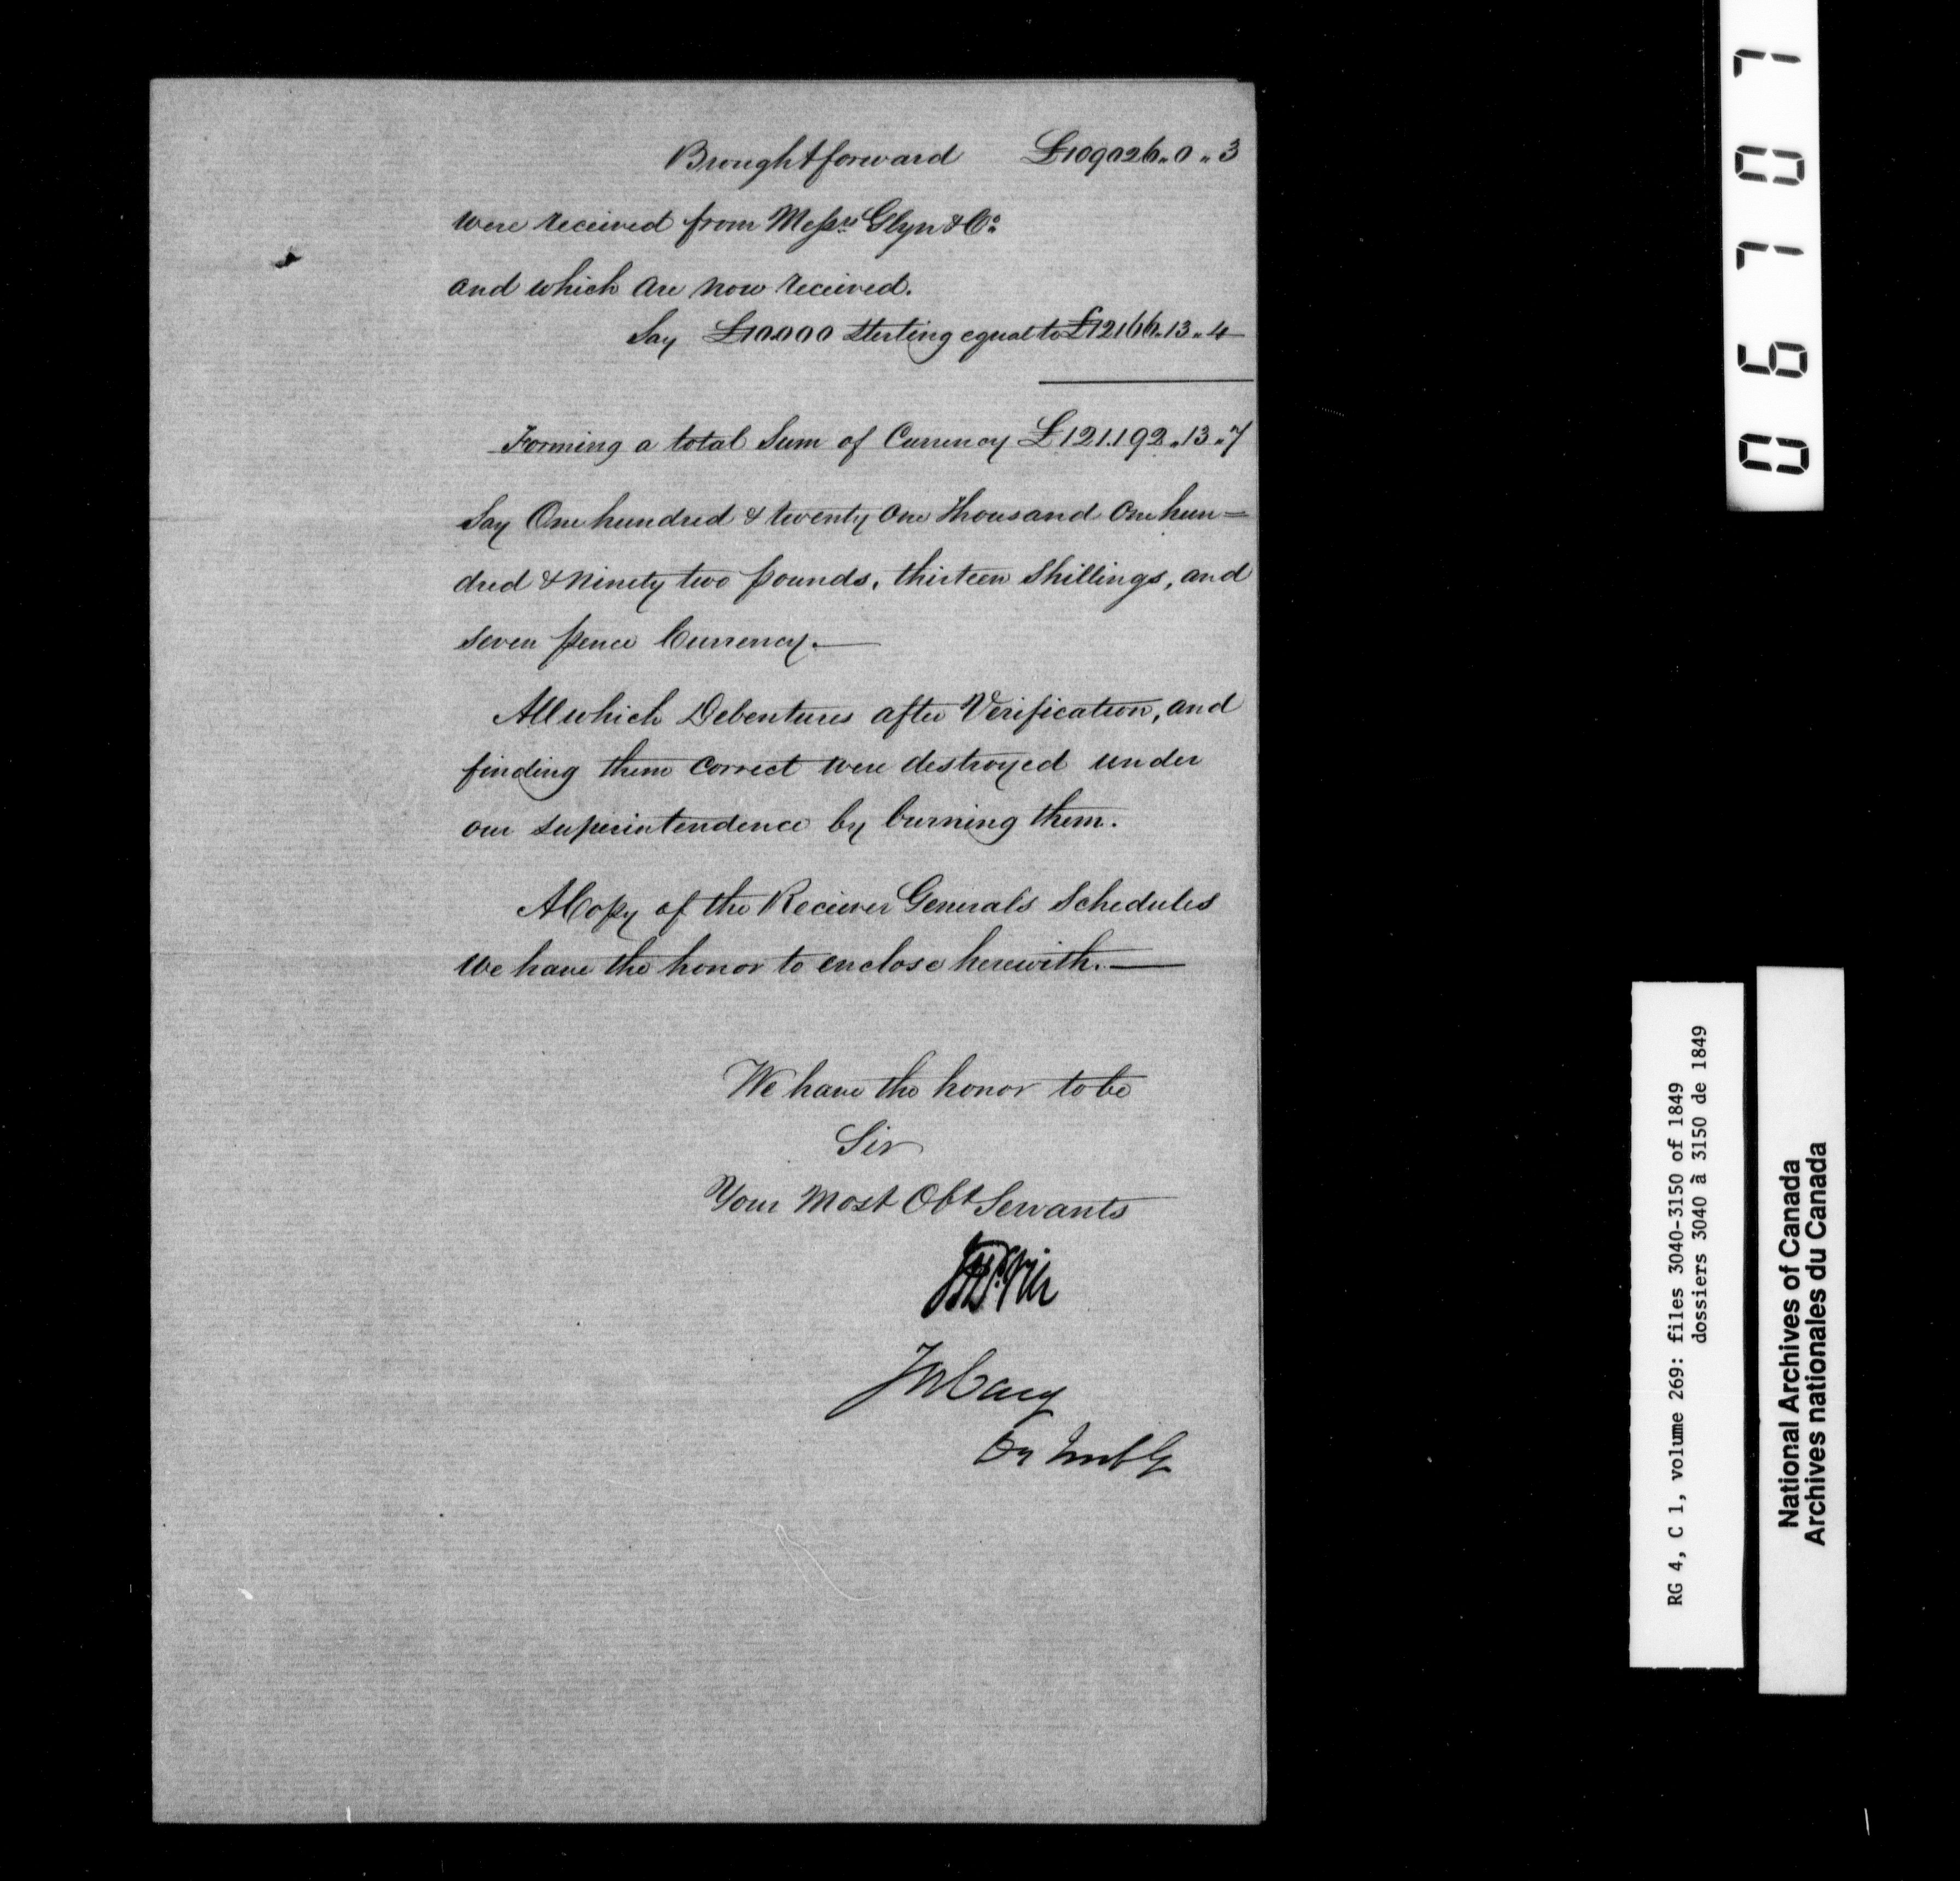 Brought forward £109026„0„3
were received from Messrs Glyn & Co:
and which are now received.
Say £10.000 Sterling equal to £12166.13„4
Forming a total Sum of Currency £121.192„13„7
Say One hundred & twenty One thousand One hun=
dred & Ninety two pounds, thirteen Shillings, and
Seven pence Currency.—
All which Debentures after Verification, and
finding them correct were destroyed under
our superintendence by burning them.
A Copy of the Reciever General's Schedules
we have the honor to enclose herewith.—
We have the honor to be
Sir
Your Most Obt Servants
Jos Cary
06707
RG 4, C 1, volume 269: files 3040-3150 of 1849
dossiers 3040 à 3150 de 1849
National Archives of Canada
Archives nationales du Canada